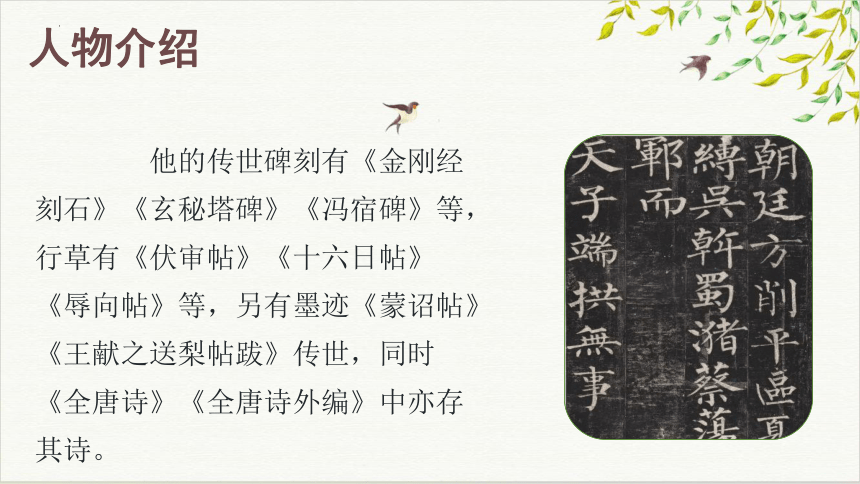 人物介绍
他的传世碑刻有《金刚经
刻石》《玄秘塔碑》《冯宿碑》等，
行草有《伏审帖》《十六日帖》
《辱向帖》等，另有墨迹《蒙诏帖》
《王献之送梨帖跋》传世，同时
《全唐诗》《全唐诗外编》中亦存
其诗。
朝廷方削平區夏
縛吳斡蜀潴蔡蕩
鄆而
天子端拱無事